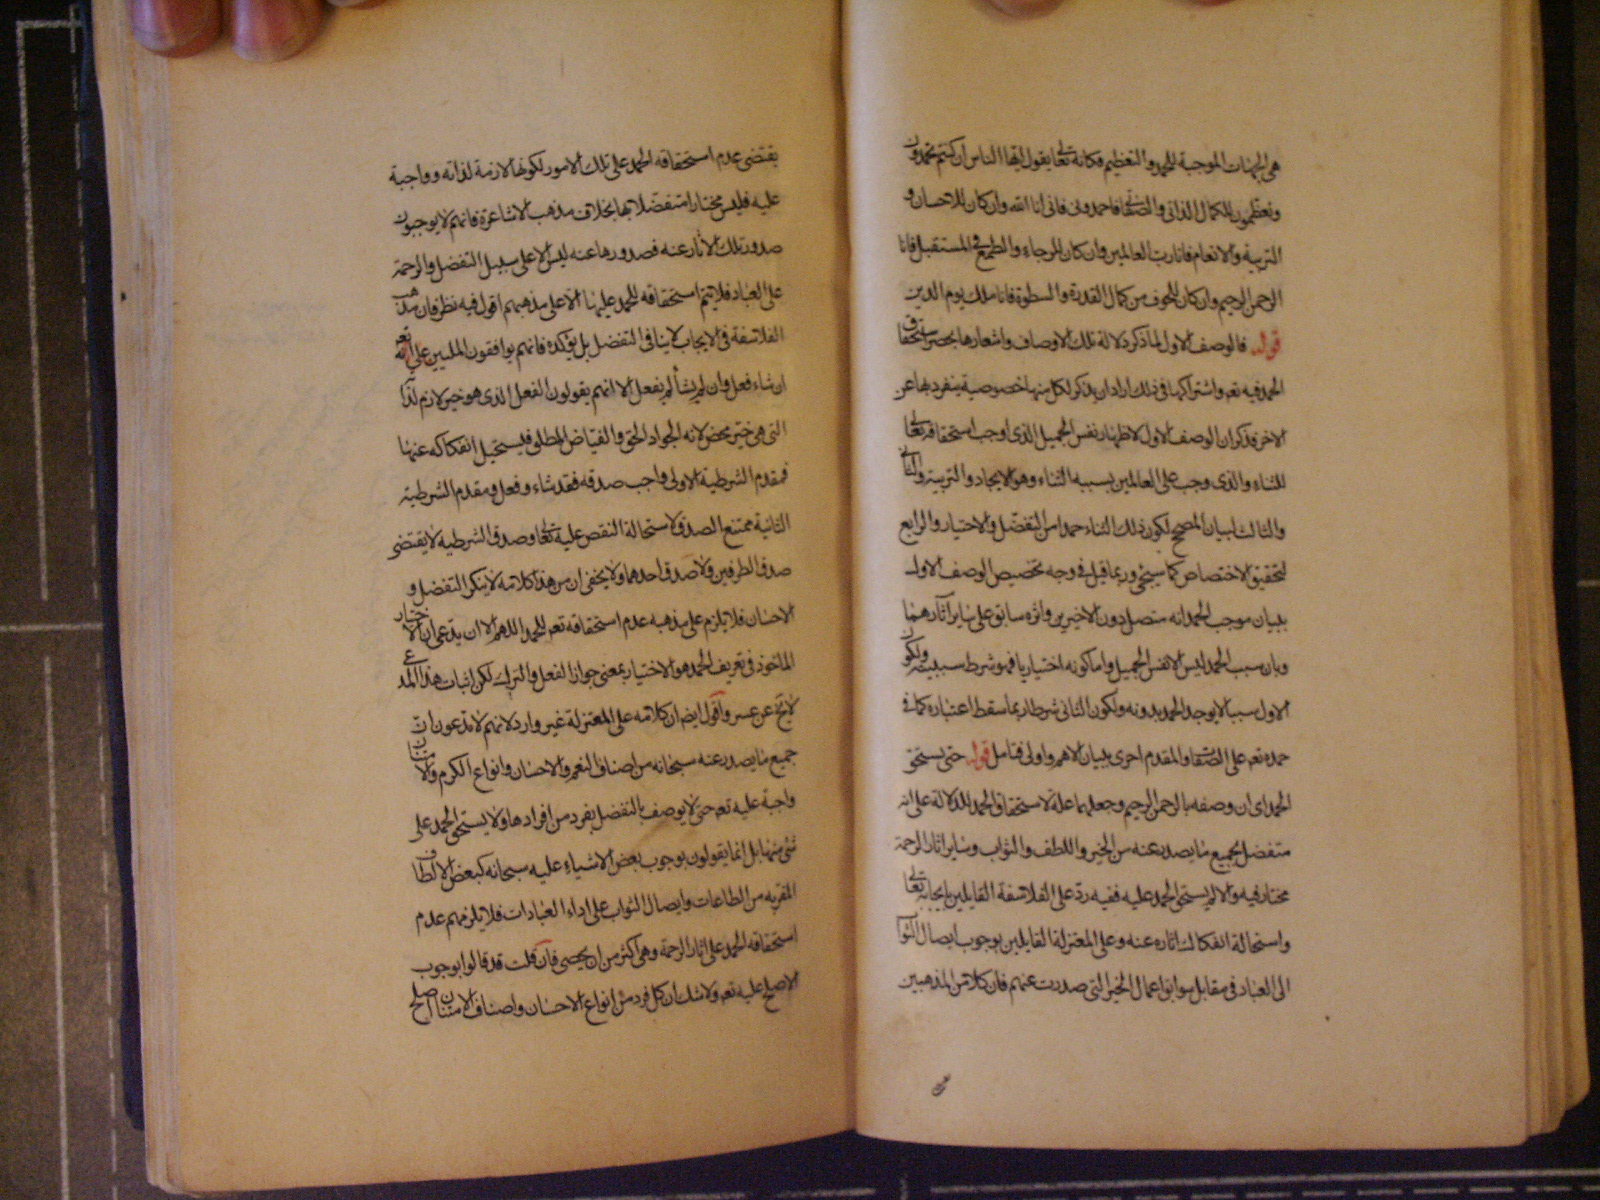 هى الجهات الموجبة للحمد والتعظيم فكانه تعالى يقول ايها الناس ان كنتم تحمدون
وتعظمون للكمال الذاتى والصفاتى فاحمدونى فانى انا الله وان كان للاحسان و
التربية والانعام فانا رب العالمين وان كان للرجاء والطمع فى المستقبل فانا
الرحمن الرحيم وان كان للخوف من كمال القدرة والسطوة فانا مالك يوم الدين
قوله فالوصف الاول لما ذكر دلالة تلك الاوصاف واشعارها بحصر استحقاق
الحمد فيه تعم واشتراكها فى ذلك اراد ان يذكر لكل منها خصوصية ينفرد بها عن
الاخر فذكر ان الوصف الاول لاظهار نفس الجميل الذى اوجب استحقاقه تعالى
للثناء والذى وجب على العالمين بسببه الثناء وهو الايجاد والتربية والثانى
والثالث لبيان المصحح لكون ذلك الثناء حمدا من التفضل والاختيار والرابع
لتحقيق الاختصاص كما سيجئ وربما قيل فى وجه تخصيص الوصف الاول
ببيان موجب الحمد انه متصل دون الاخيرين واثره سابق على ساير آثارهما
وبان سبب الحمد ليس الا نفس الجميل واما كونه اختياريا فهو شرط سببيته ولكون
الاول سببا لا يوجد الحمد بدونه ولكون الثانى شرطا ربما سقط اعتباره كما فى
حمده تعم على الصفات والمقدم احرى ببيان الاهم واولى فتامل قوله حتى يستحق
الحمد اى ان وصفه بالرحمن الرحيم وجعلهما علة لاستحقاق الحمد للدلالة على انه
متفضل بجميع ما يصدر عنه من الخير واللطف والثواب وساير اثار الرحمة
مختار فيه والا لم يستحق الحمد عليه ففيه رد على الفلاسفة القايلين بايجابه تعالى
واستحالة انفكاك اثاره عنه وعلى المعتزلة القايلين بوجوب ايصال الثواب
الى العباد فى مقابل سوابق اعمال الخير التى صدرت عنهم فان كلا من المذهبين
يقتضى عدم استحقاقه الحمد على تلك الامور لكونها لازمة لذاته وواجبة
عليه فليس مختارا متفضلا بها بخلاف مذهب الاشاعرة فانهم لا يوجبون
صدور تلك الاثار عنه فصدورها عنه ليس الا على سبيل التفضل والرحمة
على العباد فلا يتم استحقاقه للحمد عليها الا على مذهبهم اقول فيه نظر فان مذهب
الفلاسفة فى الايجاب لا ينافى التفضل بل يؤكده فانهم يوافقون المليين على انه تعم
ان شاء فعل وان لم يشأ لم يفعل الا انهم يقولون الفعل الذى هو خير لازم لذاته
التى هى خير محض لانه الجواد الحق والفياض المطلق فيستحيل انفكاكه عنها
فمقدم الشرطية الاولى واجب صدقه فقد شاء وفعل ومقدم الشرطية
الثانية ممتنع الصدق لاستحالة النقص عليه تعالى وصدق الشرطية لا يقتضى
صدق الطرفين ولا صدق احدهما ولا يخفى ان من هذا كلامه لا ينكر التفضل و
الاحسان فلا يلزم على مذهبه عدم استحقاقه تعم للحمد اللهم الا ان يدعى ان الاختيار
الماخوذ فى تعريف الحمد هو الاختيار بمعنى جواز الفعل والترك لكن اثبات هذا المدعى
لا يخ عن عسر واقول ايضا ان كلامه على المعتزلة غير وارد لانهم لا يدعون ان
جميع ما يصدر عنه سبحانه من اصناف النعم والاحسان وانواع الكرم والامتنان
واجبة عليه تعم حتى لا يوصف بالتفضل بفرد من افرادها ولا يستحق الحمد على
شئ منها بل انما يقولون بوجوب بعض الاشياء عليه سبحانه كبعض الالطاف
المقربة من الطاعات وايصال الثواب على اداء العبادات فلا يلزمهم عدم
استحقاقه الحمد على اثار الرحمة وهى اكثر من ان يحصى فان قلت قد قالوا بوجوب
الاصلح عليه تعم ولا شك ان كل فرد من انواع الاحسان واصناف الامتنان اصلح